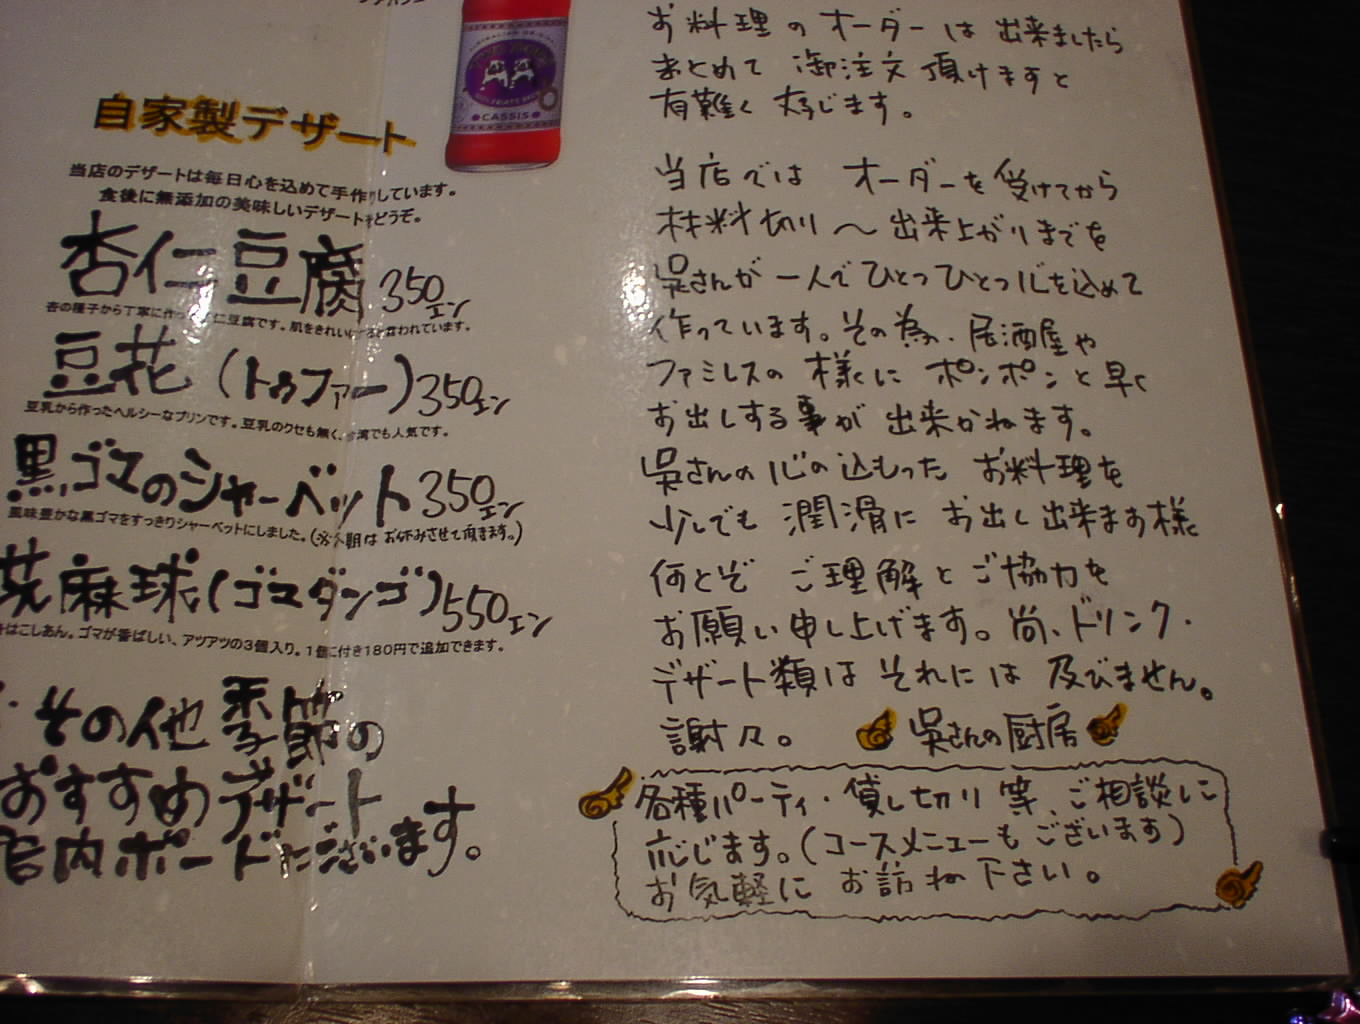 CASSIS
自家製デザート
当店のデザートは毎日心を込めて手作りしています。
食後に無添加の美味しいデザートをどうぞ。
杏仁豆腐 350エン
杏の種子から丁寧に作った 仁豆腐です。肌をきれいに 言われています。
豆花(トゥファー)350エン
豆乳から作ったヘルシーなプリンです。豆乳のクセも無く、台湾でも人気です。
黒ゴマのシャーベット 350エン
風味豊かな黒ゴマをすっきりシャーベットにしました。(※冬期はお休みさせて頂きます。)
芝麻球(ゴマダンゴ)550エン
はこしあん。ゴマが香ばしい、アツアツの3個入り。1個に付き180円で追加できます。
その他 季節の
おすすめデザート
店内ボードにございます。
お料理のオーダーは 出来ましたら
まとめて 御注文 頂けますと
有難く 存じます。
当店では オーダーを 受けてから
材料切り〜出来上がりまでを
呉さんが 一人で ひとつひとつ 心を込めて
作っています。その為、居酒屋や
ファミレスの 様に ポンポンと 早く
お出しする事が 出来かねます。
呉さんの 心の込もった お料理を
少しでも 潤滑に お出し出来ます様
何とぞ ご理解と ご協力を
お願い申し上げます。尚、ドリンク・
デザート類は それには 及びません。
謝々。 呉さんの厨房
各種パーティ・貸し切り等、ご相談に
応じます。(コースメニューもございます)
お気軽に お訪ね下さい。